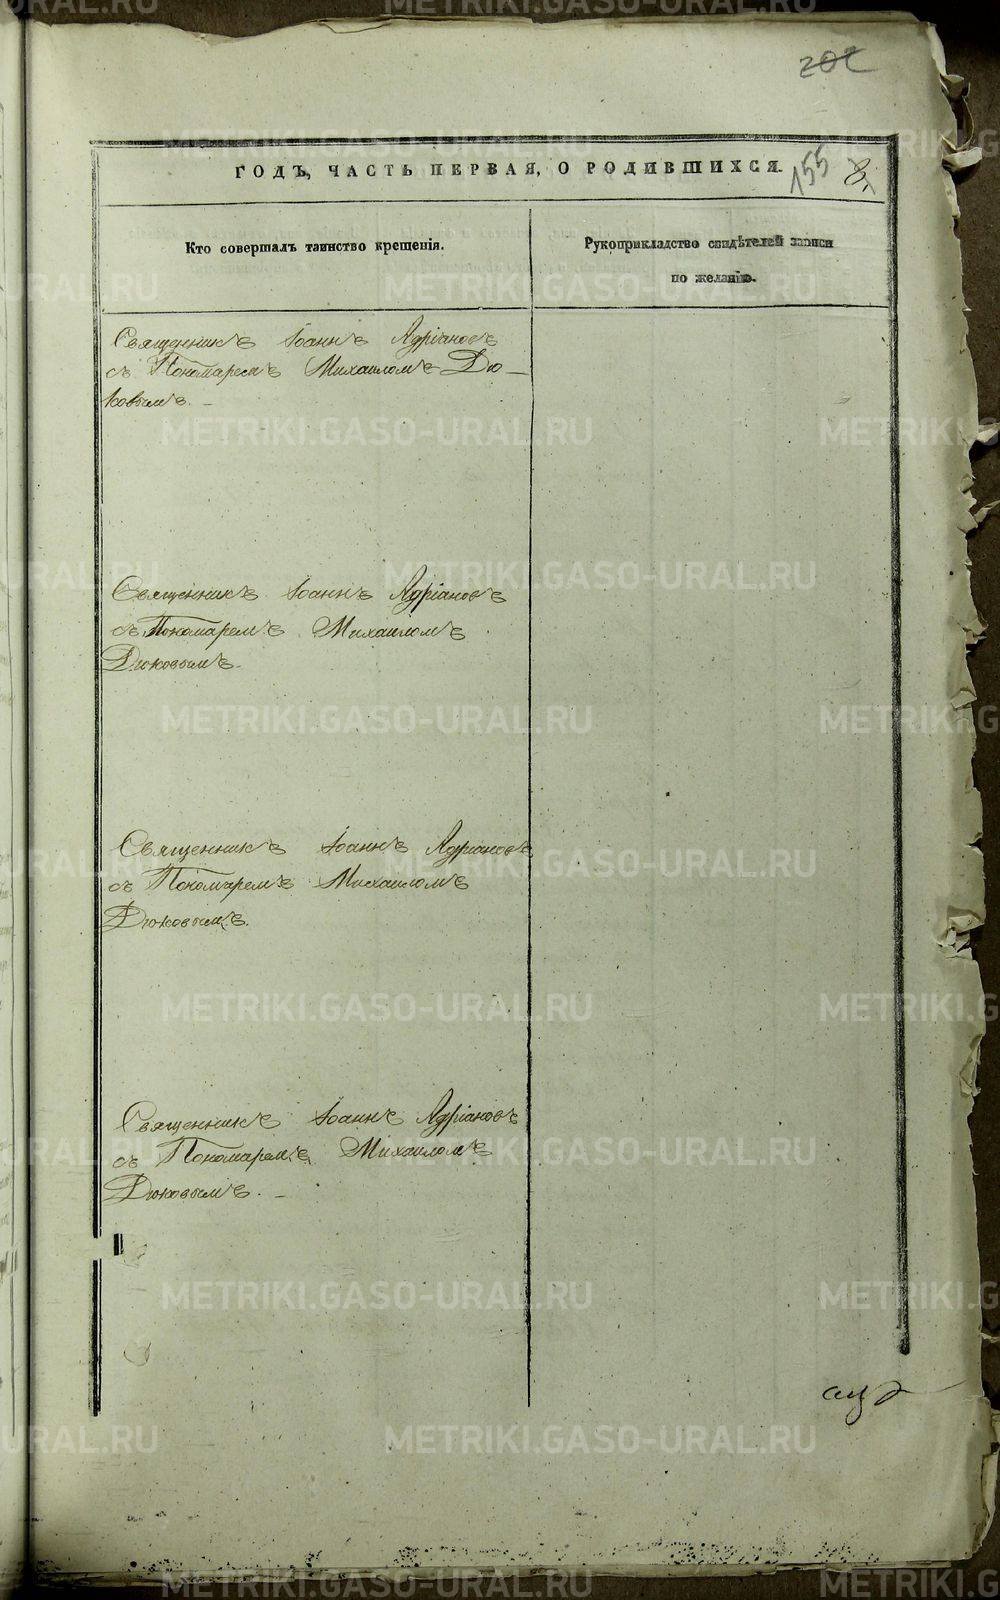 202
ГОДЪ, ЧАСТЬ ПЕРВАЯ, О РОДИВШИХСЯ.
155
8.
Кто совершалъ таинство крещенія.
Рукоприкладство свидѣтелей записи
по желанію.
Священникъ Іоаннъ Адріановъ
съ Пономаремъ Михаиломъ Дю-
ковымъ. -
Священникъ Іоаннъ Адріановъ
съ Пономаремъ Михаиломъ
Дюковымъ.
Священникъ Іоаннъ Адріановъ
съ Пономаремъ Михаиломъ
Дюковымъ.
Священникъ Іоаннъ Адріановъ
съ Пономаремъ Михаиломъ
Дюковымъ. -
METRIKI.GASO-URAL.RU